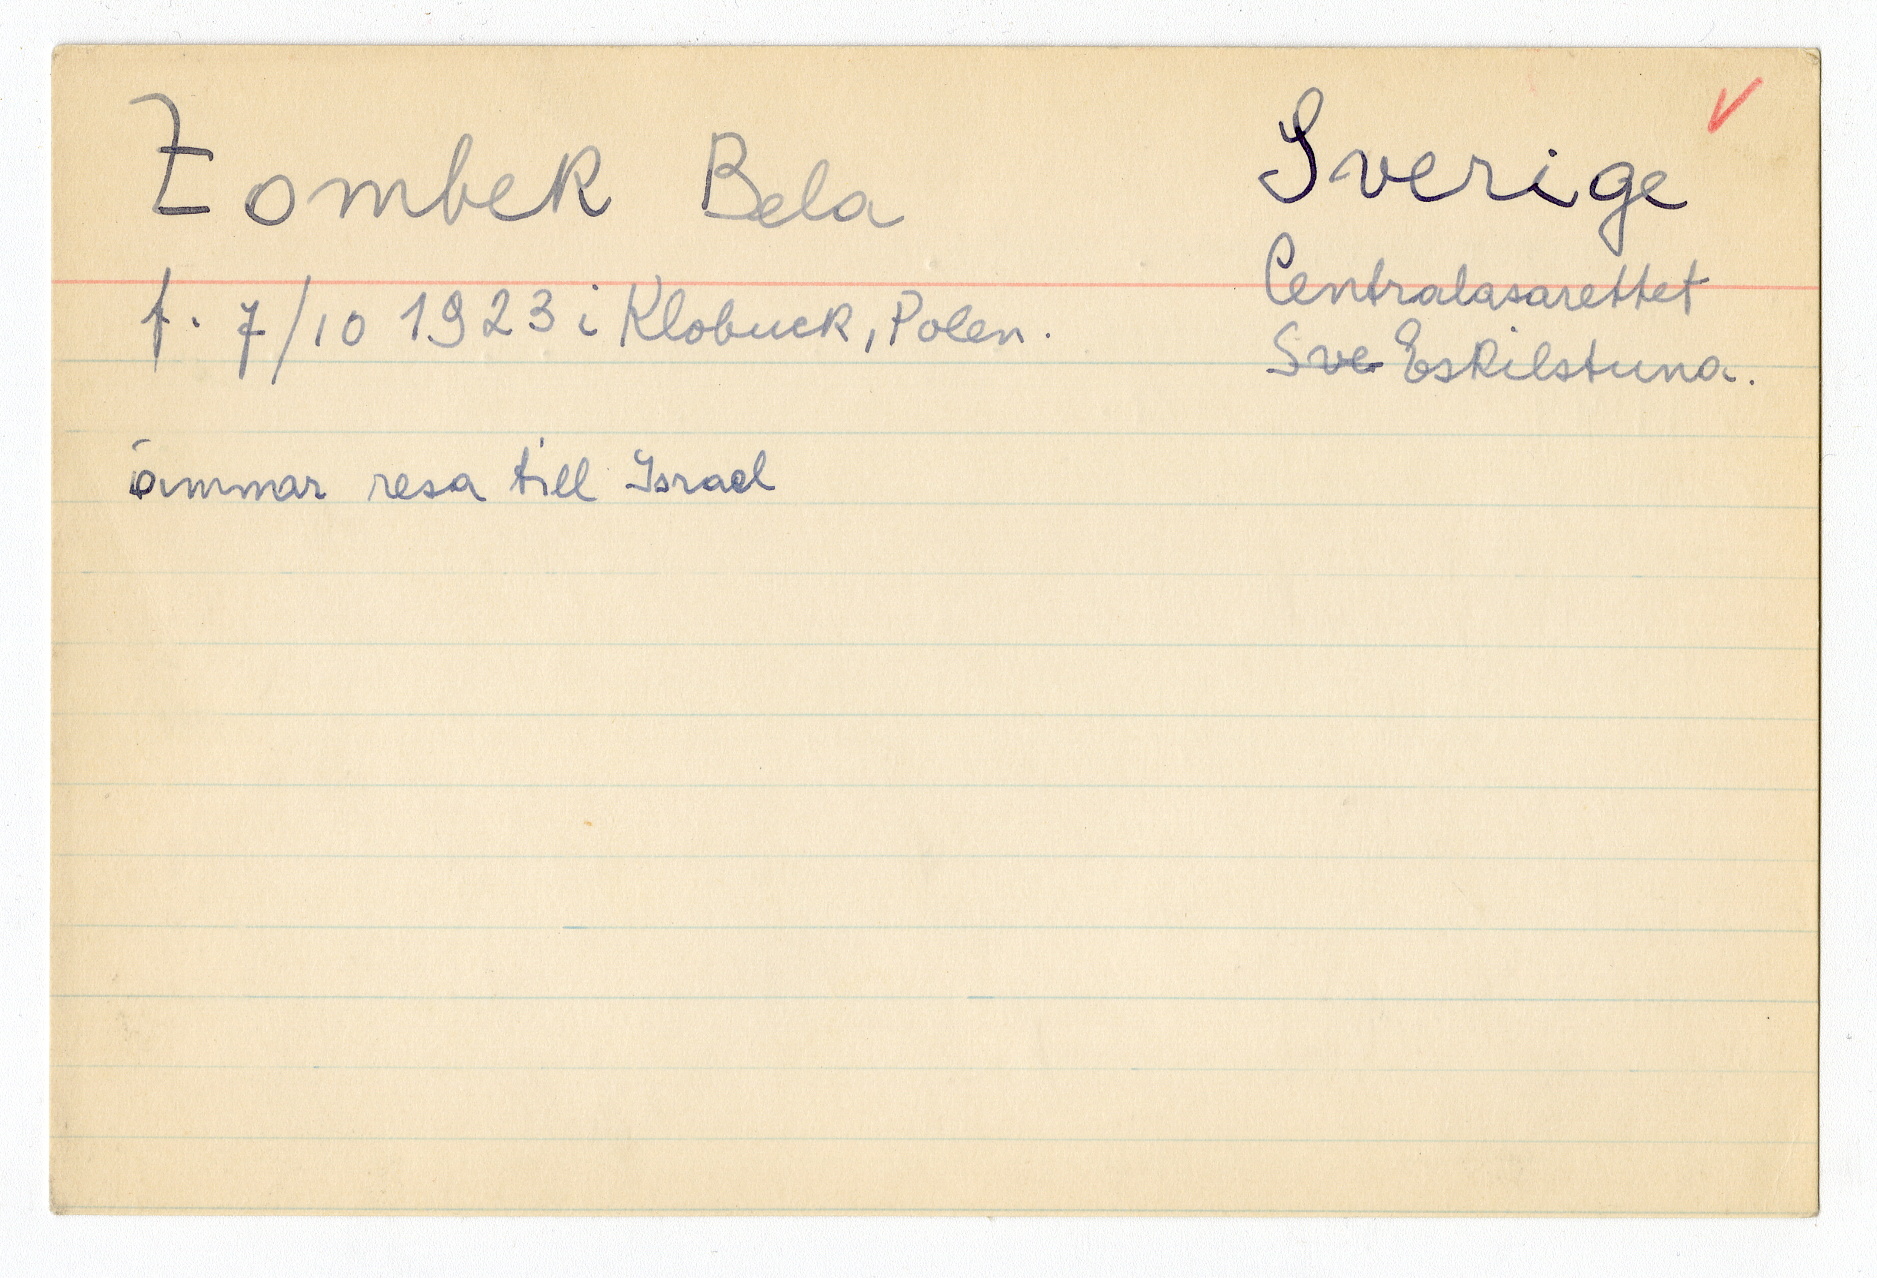 Zombek Bela
Sverige
f. 7/10 1923 i Klobuck, Polen.
Centralasarettet
Sve Eskilstuna.
ämmar resa till Israel